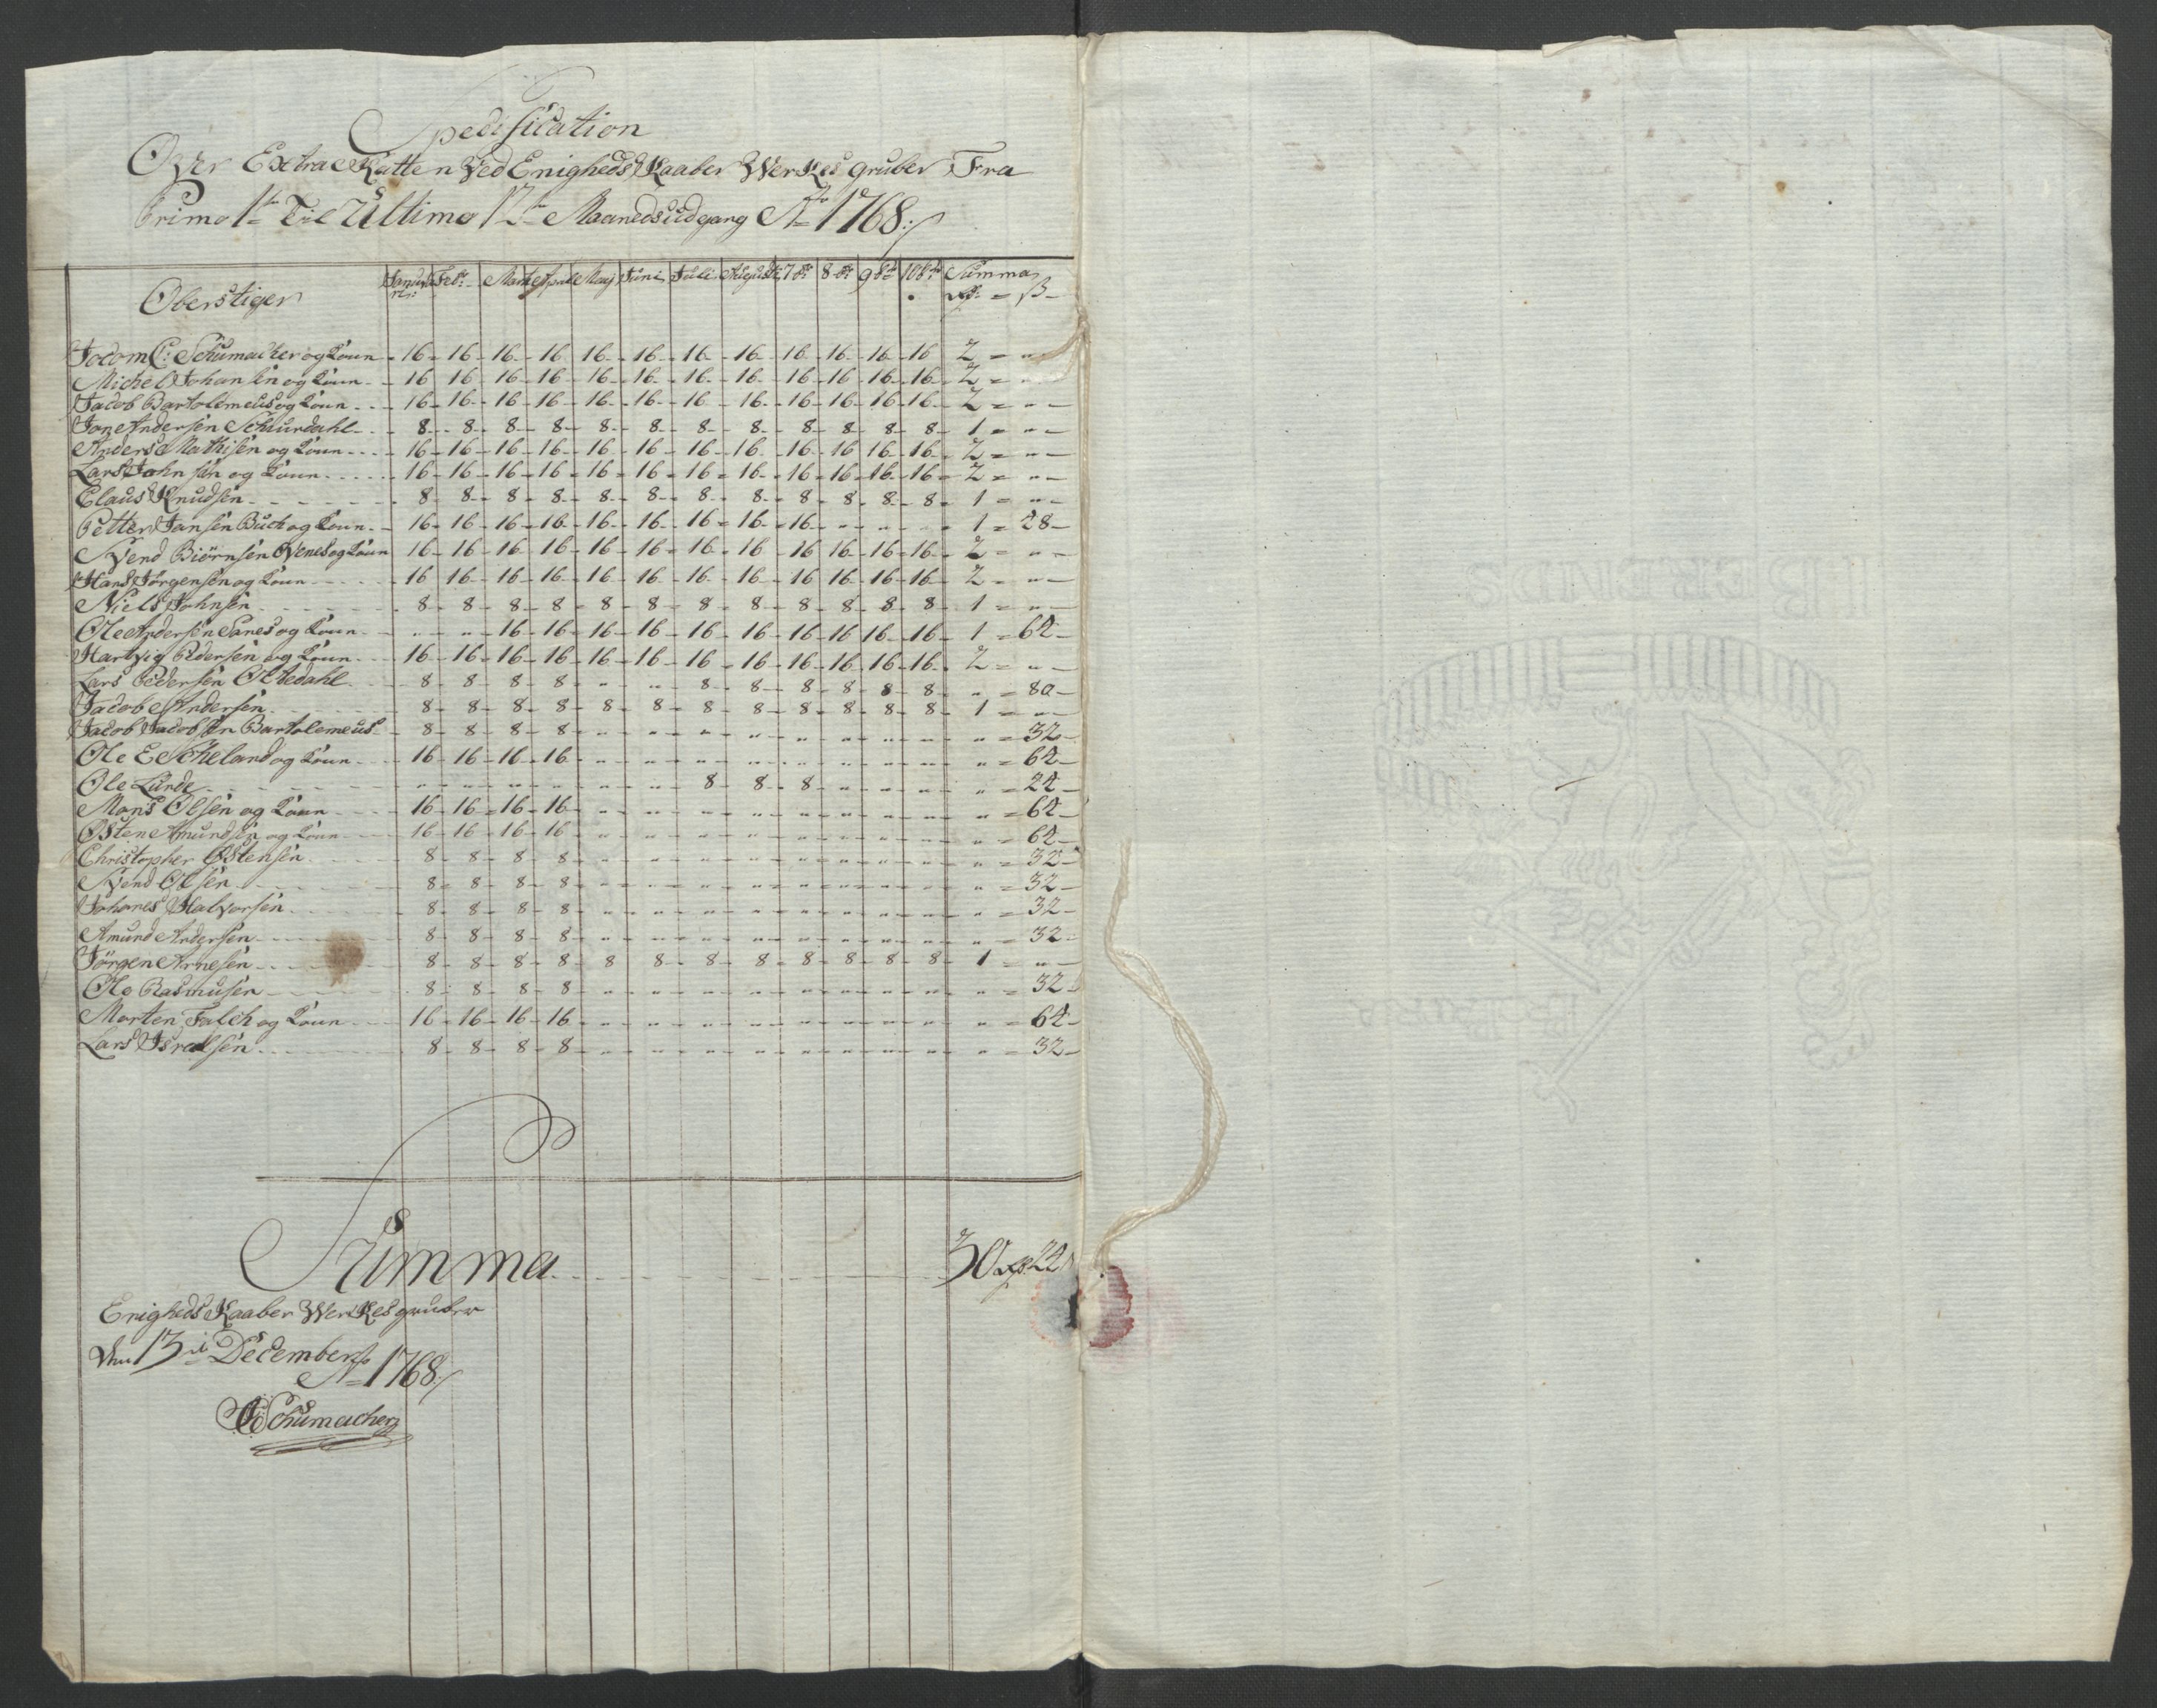 Specification
Over Extra Skatten Ved Enigheds Kaaber Werkes gruber Fra
Primo 1te Til Ultimo 12te Maaneds udgang Ao 1768:/
Oberstiger Januari: Febr: Marti April Maj Juni Juli Augusti 7br 8br 9br 10br Summa
Rd = ß
Jocom C: Schumacher og Koun 16 16 16 16 16 16 16 16 16 16 16 16 2 = "
Michel Johansen og Koun 16 16 16 16 16 16 16 16 16 16 16 16 2 = "
Jacob Bartolomeus og Koun 16 16 16 16 16 16 16 16 16 16 16 16 2 = "
Jan Andersen Schurdahl 8 8 8 8 8 8 8 8 8 8 8 8 1 = "
Anders Mathisen og Koun 16 16 16 16 16 16 16 16 16 16 16 16 2 = "
Lars Johnsen og Koun 16 16 16 16 16 16 16 16 16 16 16 16 2 = "
Claus Knudsen 8 8 8 8 8 8 8 8 8 8 8 8 1 = "
Petter Jansen Buch og Koun 16 16 16 16 16 16 16 16 16 " " " 1 = 28
Svend Biørnsen Venes og Koun 16 16 16 16 16 16 16 16 16 16 16 16 2 = "
Hans Jørgensen og Koun 16 16 16 16 16 16 16 16 16 16 16 16 2 = "
Niels Johnsen 8 8 8 8 8 8 8 8 8 8 8 8 1 = "
Ole Andersen Sanes og Koun " " 16 16 16 16 16 16 16 16 16 16 1 = 64
Hartvig Pedersen og Koun 16 16 16 16 16 16 16 16 16 16 16 16 2 = "
Lars Pedersen 8 8 8 8 " " 8 8 8 8 8 8 " = 80
Jacob Andersen 8 8 8 8 8 8 8 8 8 8 8 8 1 = "
Jacob Jacobsen Bartolemeus 8 8 8 8 " " " " " " " " " = 32
Ole E Scheland og Koun 16 16 16 16 " " " " " " " " " = 64
Ole Lunde " " " " " " 8 8 8 " " " " = 24
Mons Olsen og Koun 16 16 16 16 " " " " " " " " " = 64
Østen Amundsen og Koun 16 16 16 16 " " " " " " " " " = 64
Christopher Østensen 8 8 8 8 " " " " " " " " " = 32
Svend Olsen 8 8 8 8 " " " " " " " " " = 32
Johanes Halvorsen 8 8 8 8 " " " " " " " " " = 32
Amund Andersen 8 8 8 8 " " " " " " " " " = 32
Jørgen Arnesen 8 8 8 8 8 8 8 8 8 8 8 8 1 = "
Ole Rasmusen 8 8 8 8 " " " " " " " " " = 32
Morten Falch og Koun 16 16 16 16 " " " " " " " " " = 64
Lars Isralsen 8 8 8 8 " " " " " " " " " = 32
Summa 30 Rd 24
Enigheds Kaaber Werkes gruber
den 13de December
Ao 1768:/
Schumacher